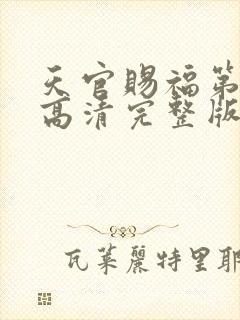 天官赐福第
高清完整版
瓦莱丽特里耶